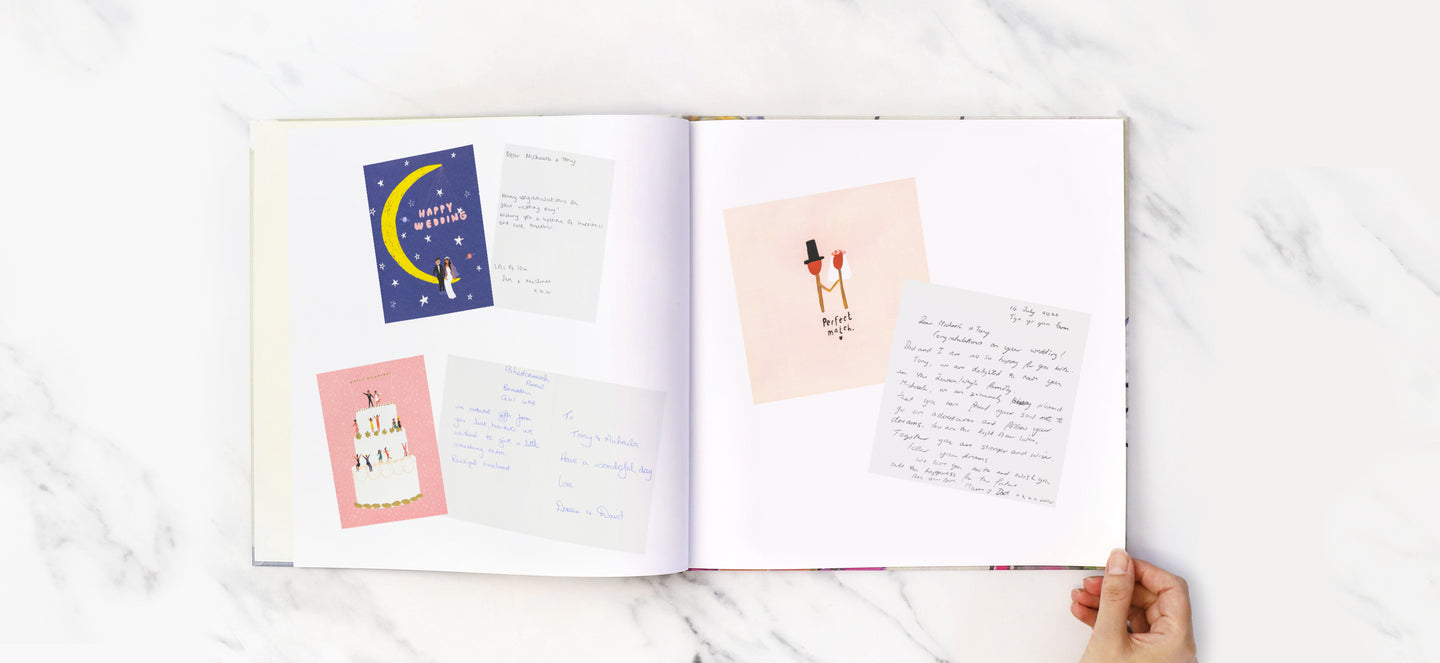 HAPPY
WEDDING
Dear Michaela & Tony
Many congratulations on
your wedding day!
Wishing you a lifetime of happiness
and love together
Lots of love
x x x
we noticed gifts from
you list, however we
wished to give a little
something extra.
Receipt enclosed
To
Tony & Michaela
Have a wonderful day
love
David
Perfect
match.
16 July 2022
Dear Michaela & Tony
Congratulations on your wedding!
Dad and I are so so happy for you both.
Tony, we are delighted to have you
in the family
Michaela, we are extremely pleased
that you have found your soul mate to
go on adventures and follow your
dreams. You are the light
Together you are stronger and wiser.
Follow your dreams
We love you both and wish you
all the happiness for the future
Mum & Dad x x x x